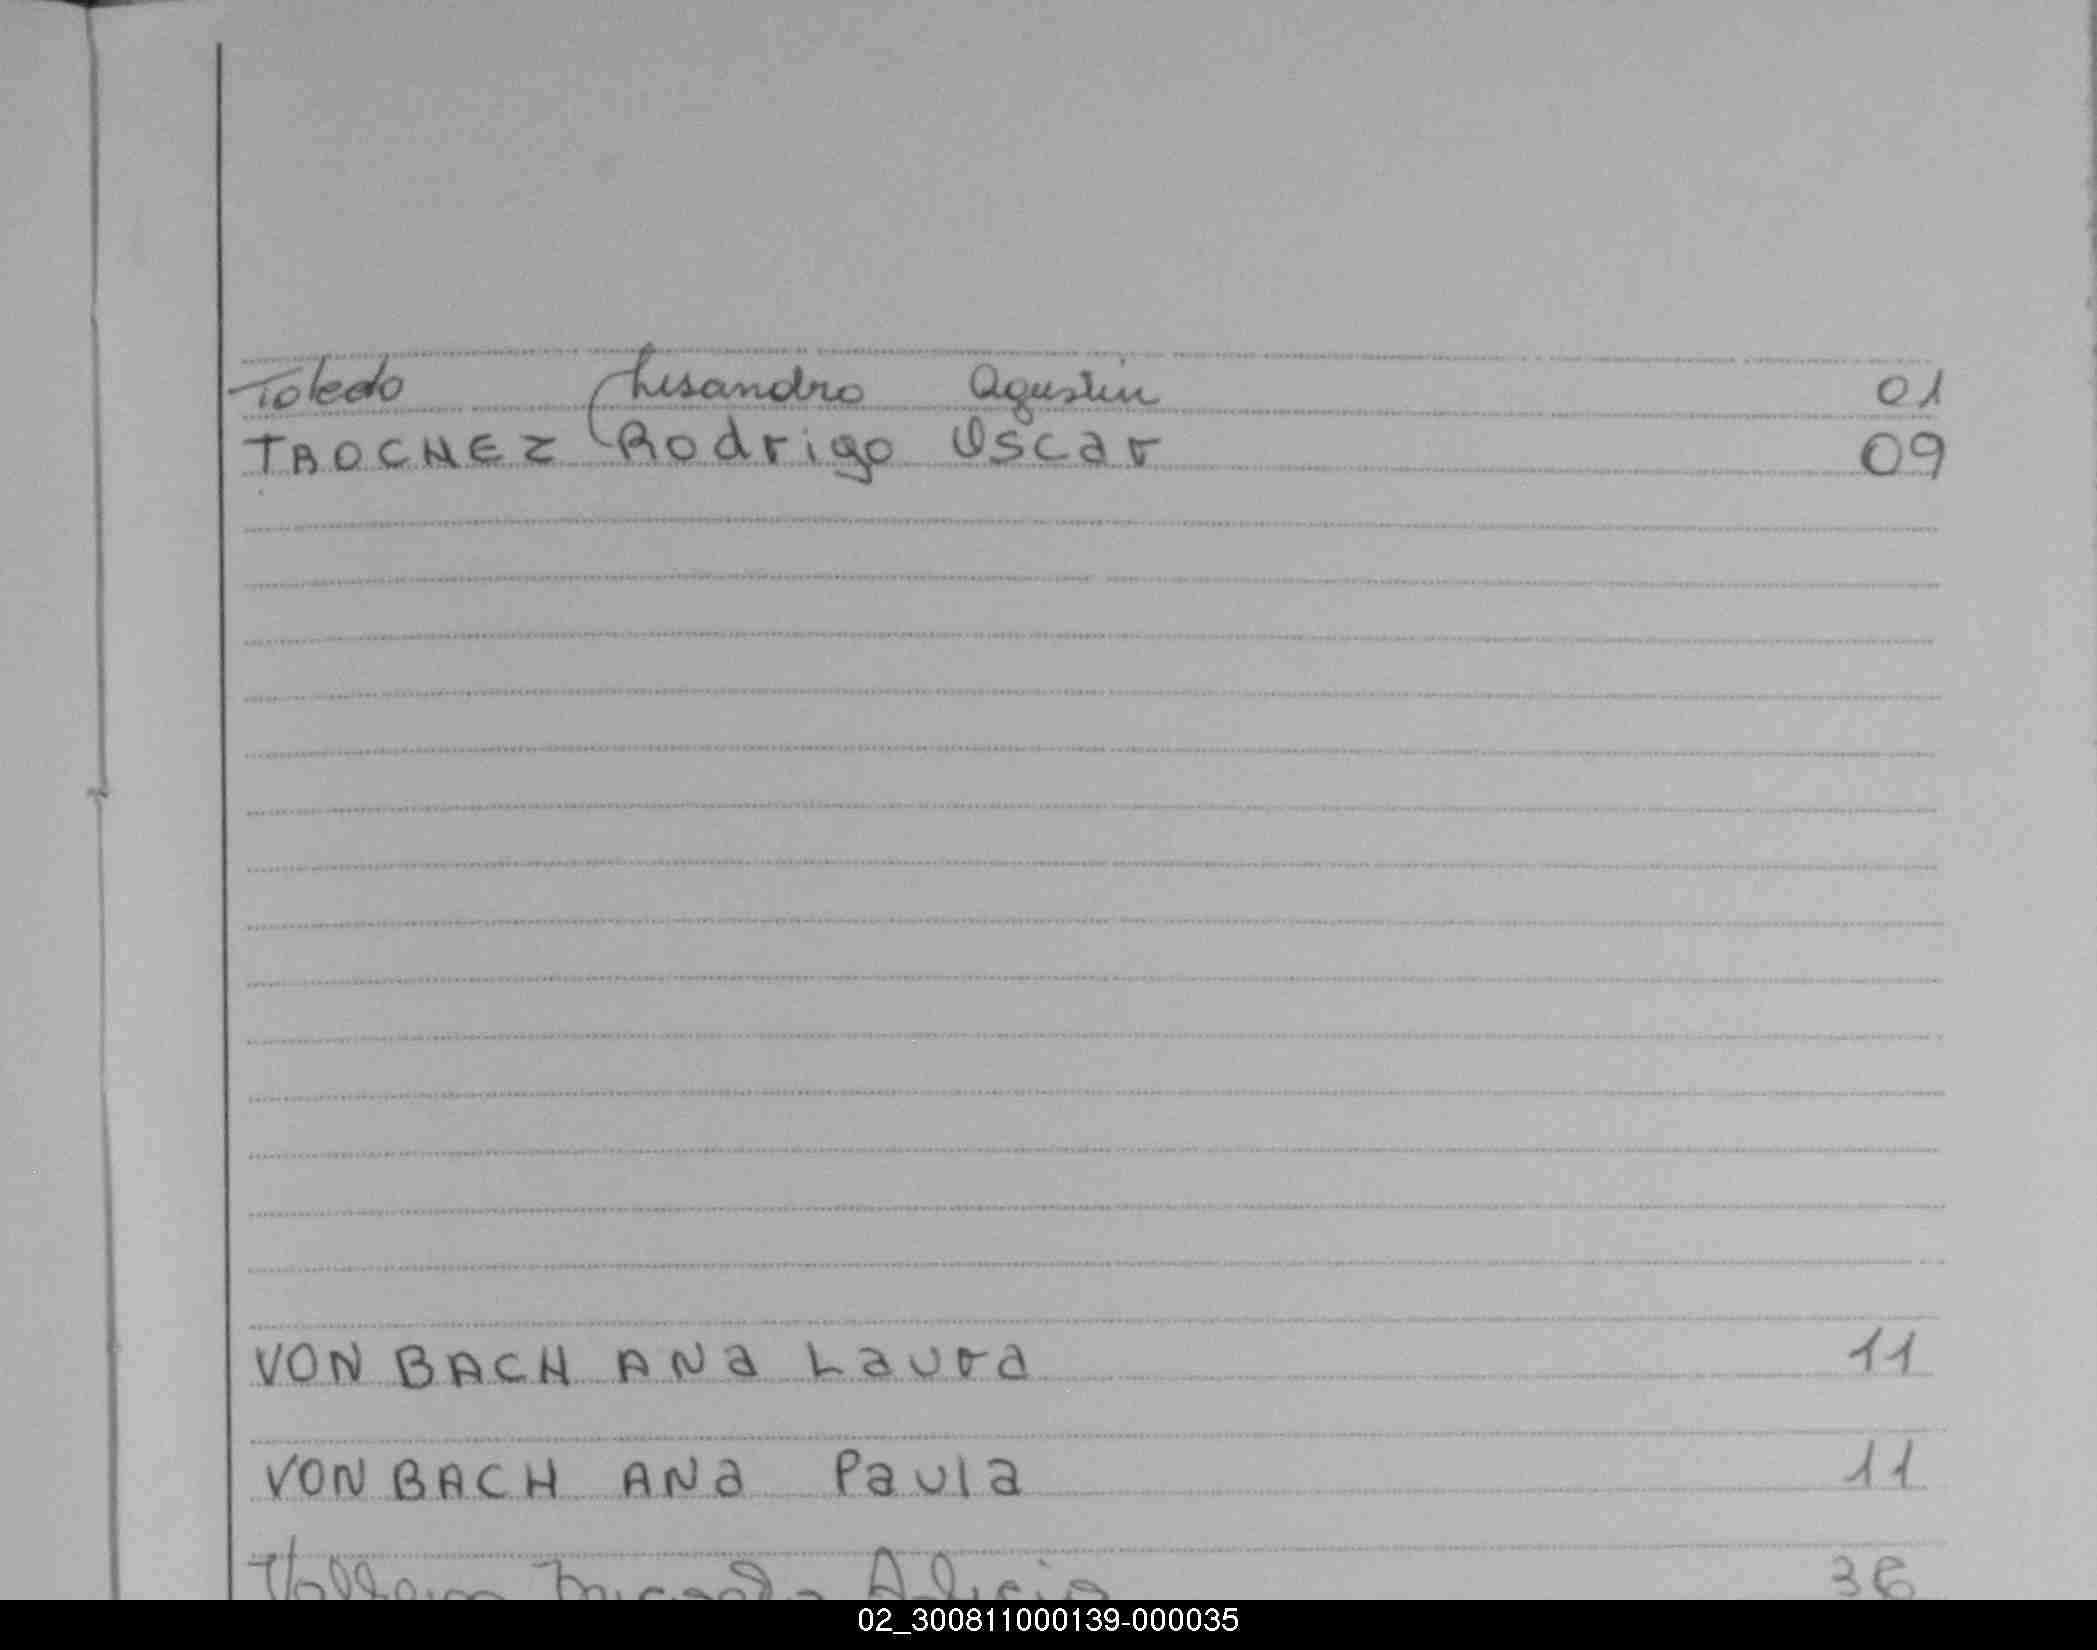 Toledo Lisandro Agustin 01
TROCHEZ Rodrigo Oscar 09
VON BACH ANa Laura 11
VON BACH ANa Paula 11
Alicia 36
02_300811000139-000035